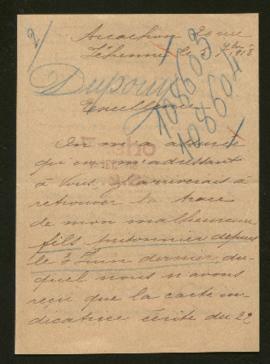 2/
Arcachon
Dupouy
108603
108604
Excellence
On m'a assuré
qu'en m'adressant
à Vous j'arriverais à
retrouver la trace
de mon malheureux
fils prisonnier depuis
le Juin dernier, du-
quel nous n'avons
reçu que la carte in-
dicatrice écrite du 22